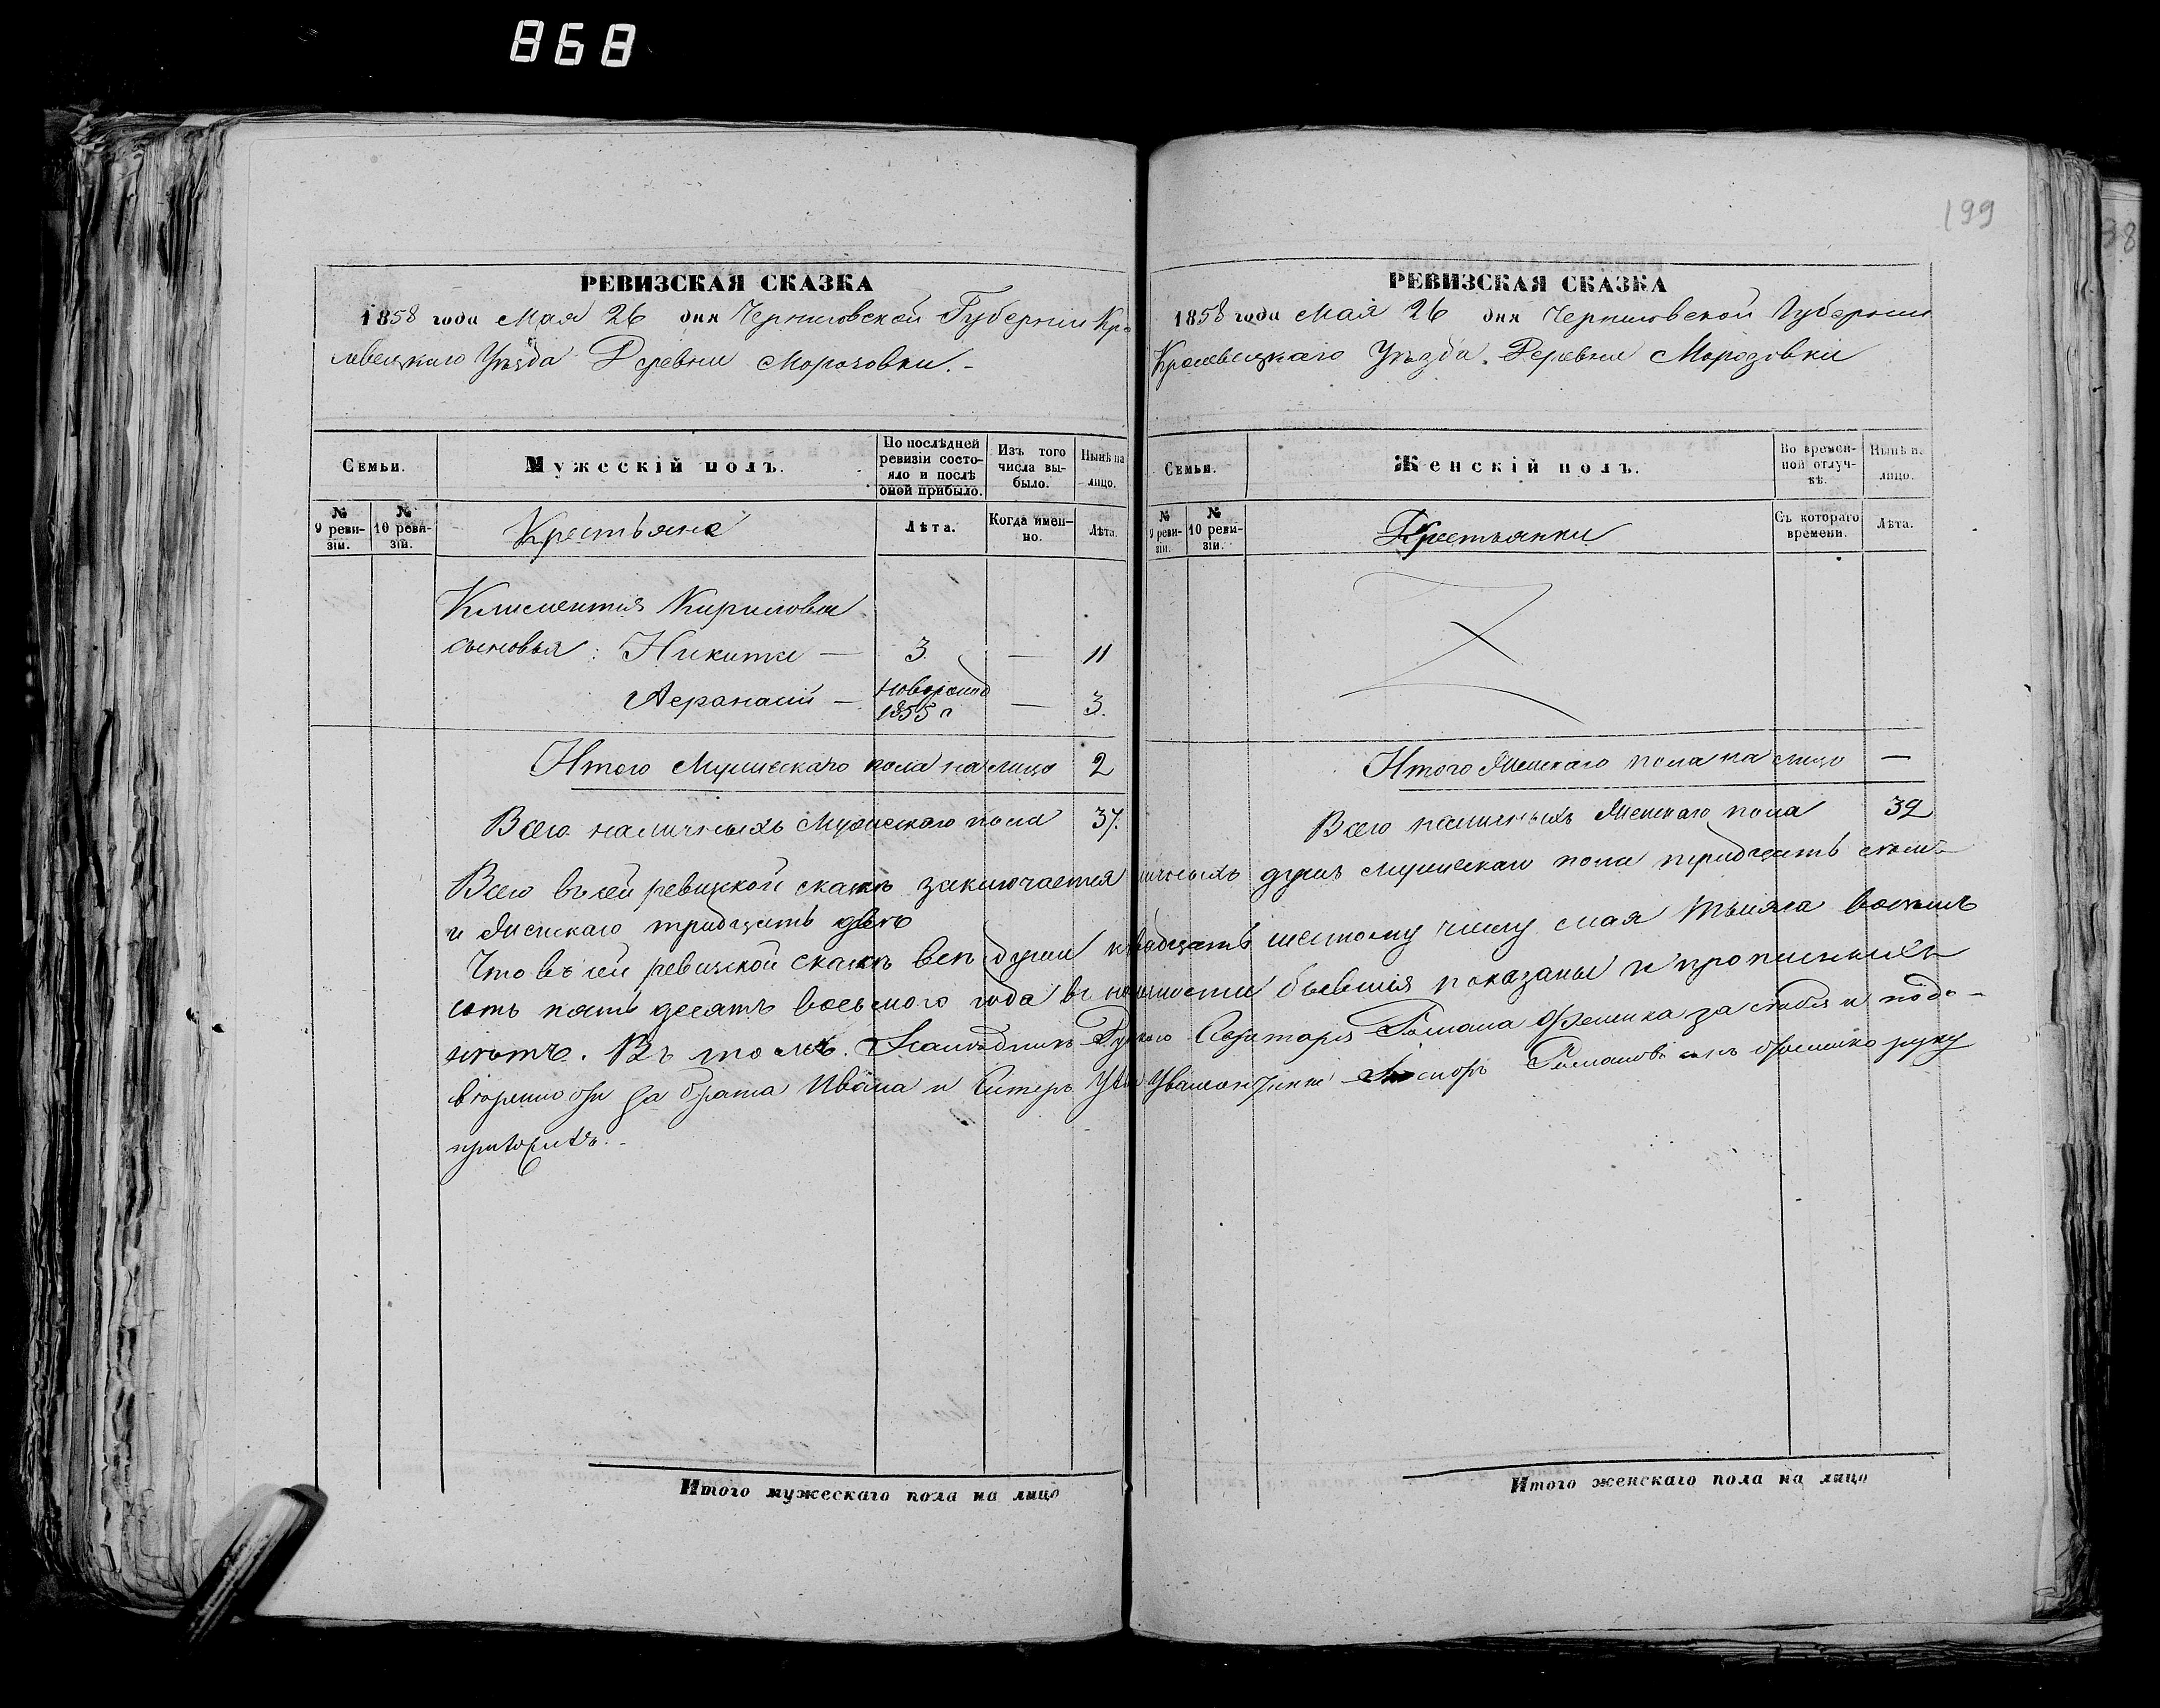 868
199
38
РЕВИЗСКАЯ СКАЗКА
1858 года Мая 26 дня Черниговской Губерніи Кро
левецкаго Уѣзда Деревни Морозовки.-
Семьи.
Мужескій полъ.
По послѣдней ревизіи состояло и послѣ оной прибыло.
Изъ того числа выбыло.
Нынѣ на лицо.
№ 9 ревизіи.
№ 10 ревизіи.
Крестьяне
Лѣта.
Когда именно.
Лѣта.
Климентія Кирилова
сыновья: Никита — 3 — 11
Афанасій — новорожд 1855 г — 3.
Итого Мужескаго пола на лицо 2
Всего наличныхъ Мужескаго пола 37.
РЕВИЗСКАЯ СКАЗКА
1858 года Мая 26 дня Черниговской Губерніи
Кролевецкаго Уѣзда. Деревни Морозовки
Семьи.
Женскій полъ.
Во временной отлучкѣ.
Нынѣ на лицо.
№ 9 ревизіи.
№ 10 ревизіи.
Крестьянки
Съ котораго времени.
Лѣта.
Итого Женскаго пола на лицо —
Всего наличныхъ Женскаго пола 32
Всего въ сей ревизской сказкѣ заключается душъ мужескаго пола тридцать семь
и Женскаго тридцать двѣ
Что въ сей ревизской сказкѣ всѣ души двадцать шестому числу мая тысяча восемь
сотъ пять десятъ восьмого года въ бывшія показаны и прописныхъ
нѣтъ. Въ томъ. Романа за себя и
за брата Ивана и руку
приложилъ.
Итого мужескаго пола на лицо
Итого женскаго пола на лицо